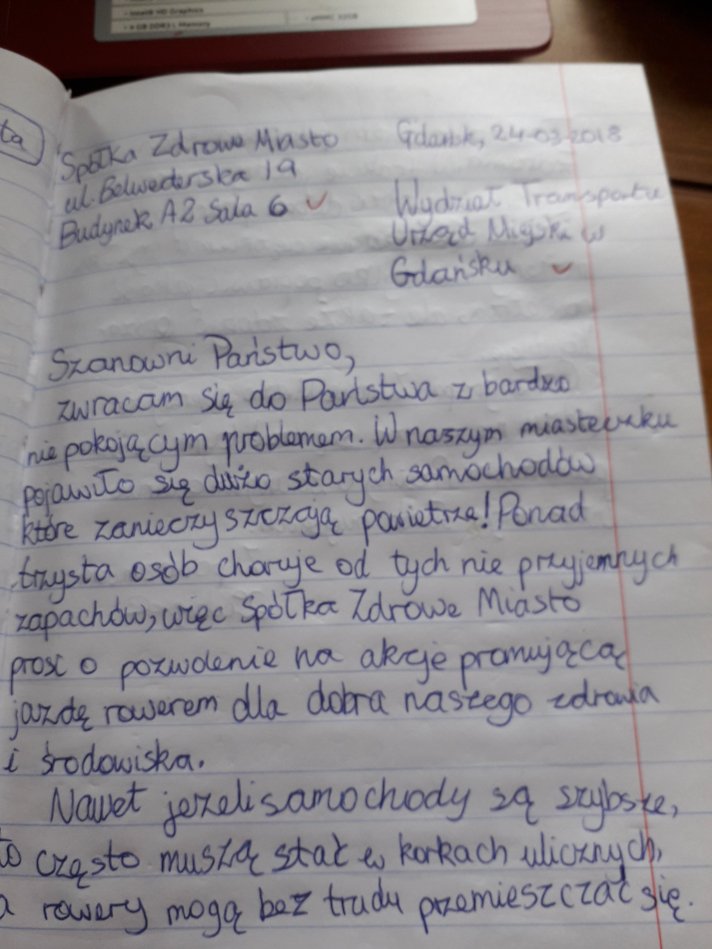 • Intel® HD Graphics
• 4 GB DDR3 L Memory
ta
Spółka Zdrowe Miasto
ul. Belwederska 19
Budynek A2 Sala 6
Gdańsk, 24-03-2018
Wydział Transportu
Urząd Miejski w
Gdańsku
Szanowni Państwo,
zwracam się do Państwa z bardzo
niepokojącym problemem. W naszym miasteczku
pojawiło się dużo starych samochodów
które zanieczyszczają powietrze! Ponad
trzysta osób choruje od tych nie przyjemnych
zapachów, więc Spółka Zdrowe Miasto
prosi o pozwolenie na akcje promującą
jazdę rowerem dla dobra naszego zdrowia
i środowiska.
Nawet jeżeli samochody są szybsze,
to często muszą stać w korkach ulicznych,
a rowery mogą bez trudu przemieszczać się.